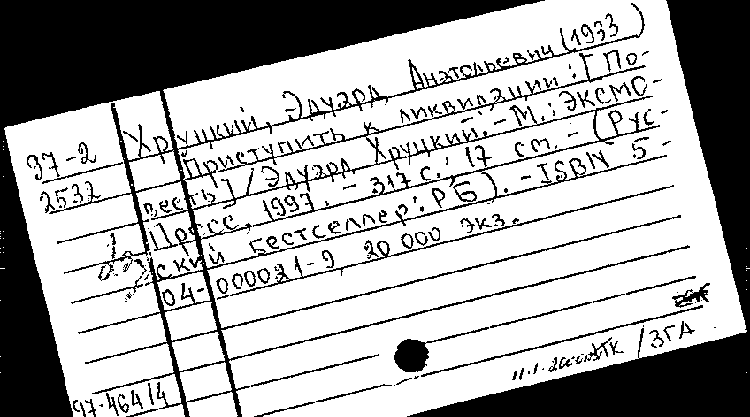 Хруцкий, Эдуард Анатольевич (1933 )
97-2 Приступить к ликвидации : [По-
2532 весть] / Эдуард Хруцкий. - М. : ЭКСМО-
Пресс, 1997. - 317 с. ; 17 см. - (Рус-
ский бестселлер : РБ). - ISBN 5-
04-000021-9, 20 000 экз.
97-46414
/ЗГА